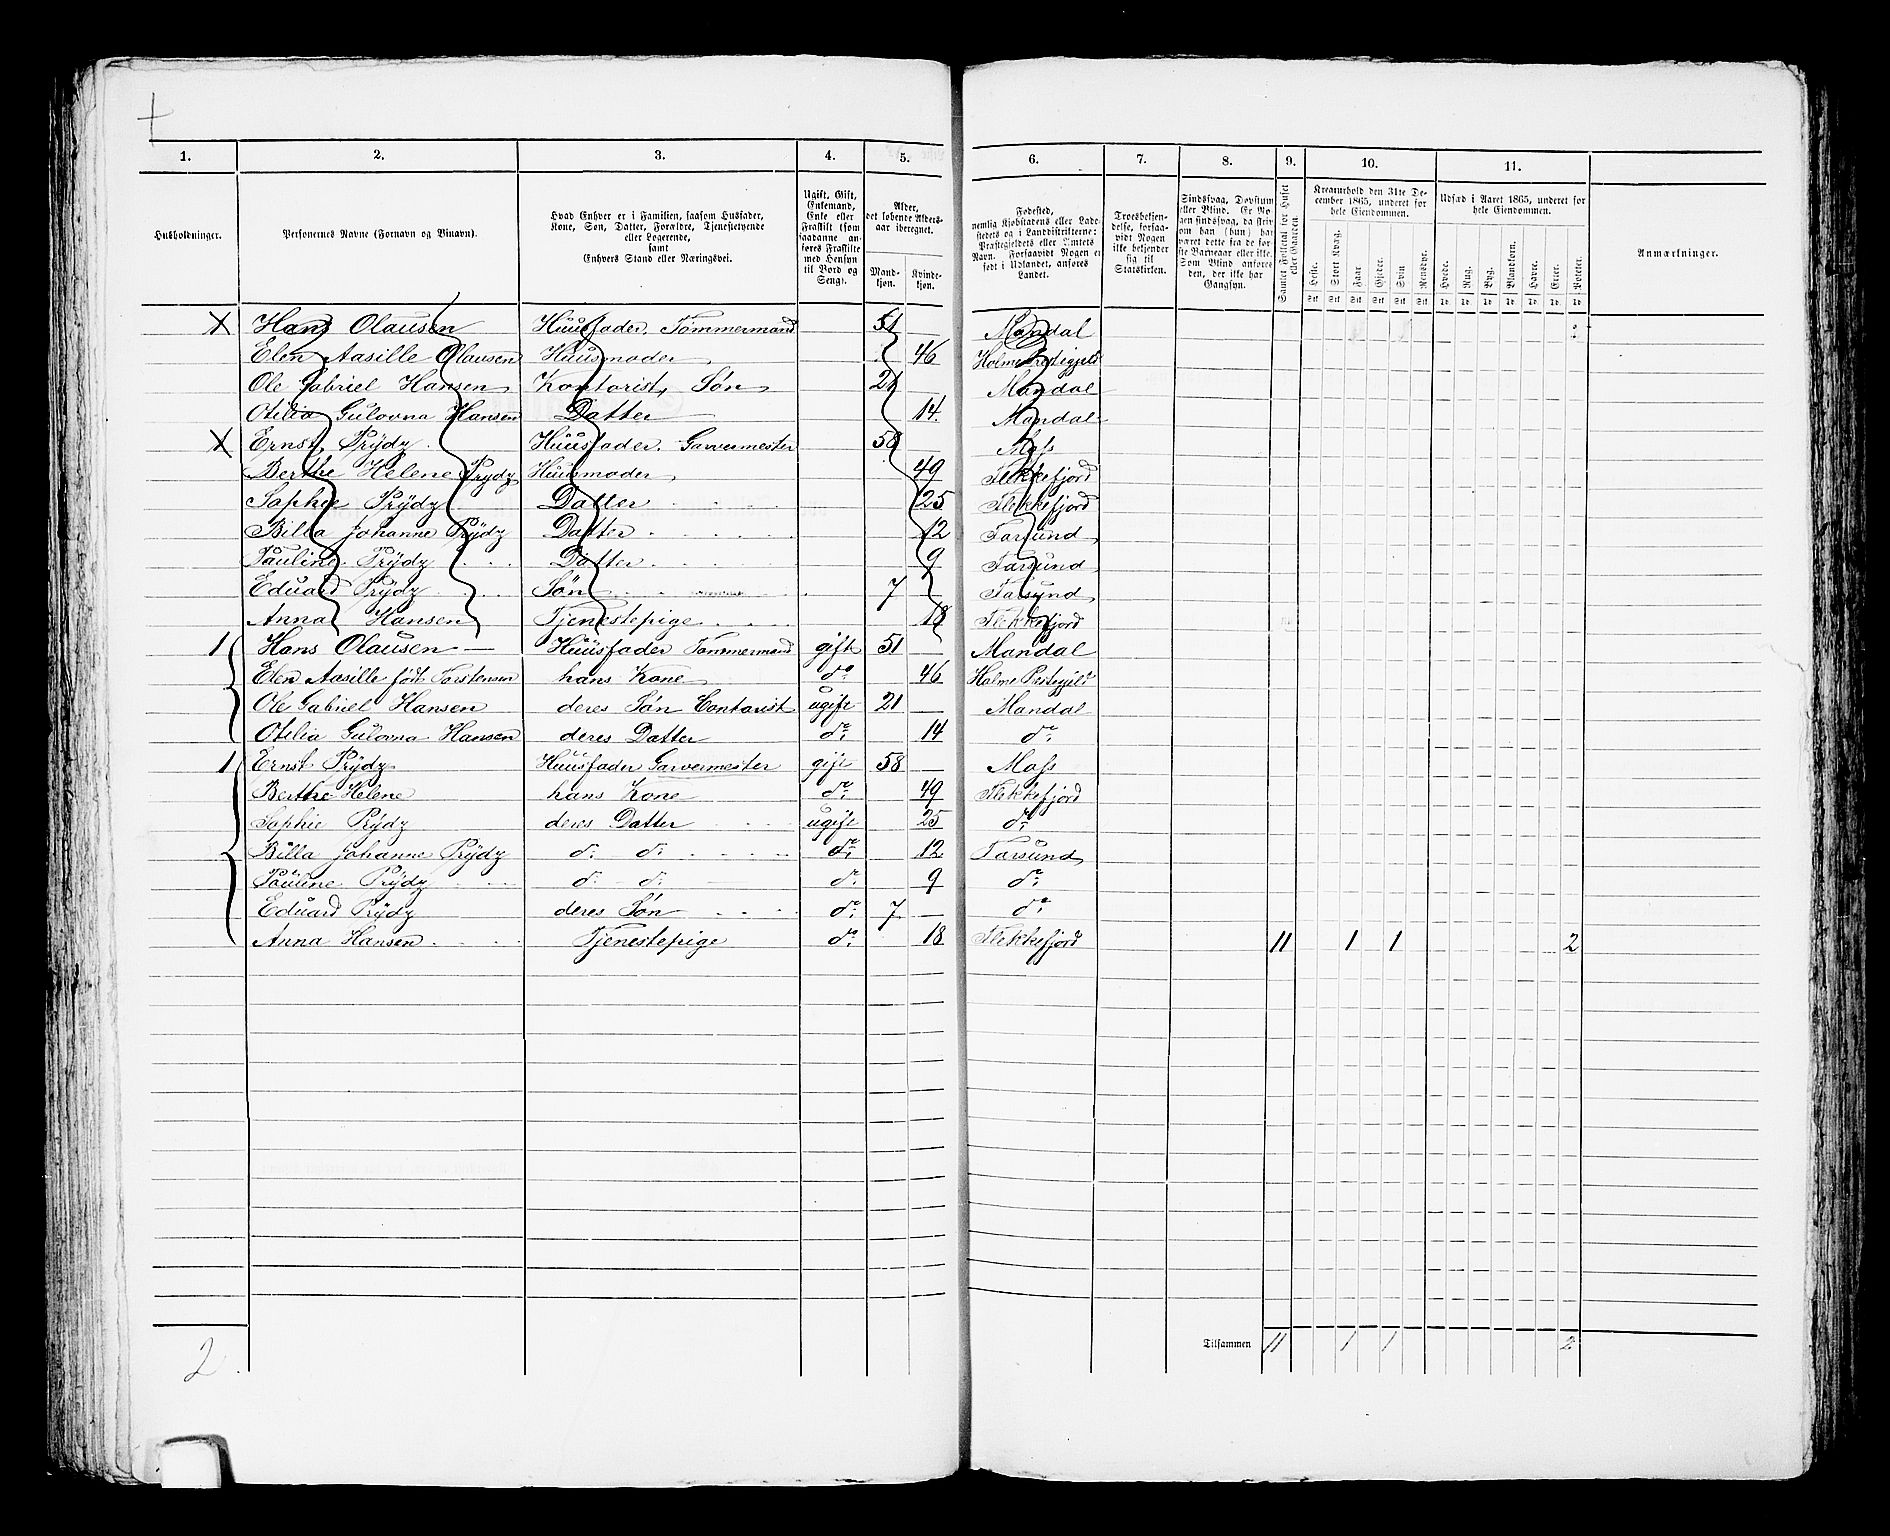 1. 2. 3. 4. 5. 6. 7. 8. 9. 10. 11.
Husholdninger.
Personernes Navne (Fornavn og Tilnavn).
Hvad Enhver er i Familien, saasom Husfader,
Kone, Søn, Datter, Forældre, Tjenestetyende
eller Logerende,
samt
Enhvers Stand eller Næringsvei.
Ugift, Gift,
Enkemand,
Enke eller
Fraskilt (som
saadanne an-
føres Fraskilte
med Hensyn
til Bord og
Seng).
Alder,
det løbende Alders-
aar iberegnet.
Mand-
kjøn.
Kvinde-
kjøn.
Fødested,
nemlig Kjøbstadens eller Lade-
stedets og i Landdistrikterne:
Præstegjeldets eller Amtets
Navn. Forsaavidt Nogen er
født i Udlandet, anføres
Landet.
Troesbekjen-
delse, forsaa-
vidt Nogen
ikke bekjender
sig til
Statskirken.
Sindssvag, Døvstum
eller Blind. Er No-
gen sindssvag, da skriv
om han (hun) har
været dette fra de før-
ste Barneaar eller ikke.
Som Blind anføres
den, der ikke har
Gangsyn.
Samlet Folketal for Huset
eller Gaarden.
Kreaturhold den 31te De-
cember 1865, underet for
hele Eiendommen.
Heste. Stort Kvæg. Faar Gjeder. Svin Rensdyr.
Stk Stk Stk Stk Stk Stk
Udsæd i Aaret 1865, underet for
hele Eiendommen.
Hvede. Rug. Byg. Blandkorn. Havre. Erter. Poteter.
Td. Td Td Td Td Td Td
Anmærkninger.
X Hans Olausen Huusfader, Tømmermand 51 Mandal
Elen Aasille Olausen Huusmoder 46 Holme Prestegjeld
Ole Gabriel Hansen Kontorist, Søn 21 Mandal
Otilia Gulovna Hansen Datter 14. Mandal
X Ernst Prÿdz Huusfader. Garvermester 58 Moss
Berthe Helene Prydz Huusmoder 49 Flekkefjord
Sophie Prÿdz Datter 25 Flekkefjord
Billa Johanne Prÿdz Datter 12 Farsund
Pauline Prÿdz Datter 9 Farsund
Eduard Prÿdz Søn 7 Farsund
Anna Hansen Tjenestepige 18 Flekkefjord
1 Hans Olausen Huusfader Tømmermand gift 51 Mandal
Elen Aasille født Torstensen hans Kone do 46 Holme Prestegjeld
Ole Gabriel Hansen deres Søn Contorist ugift 21 Mandal
Otilia Gulovna Hansen deres Datter do 14 do
1 Ernst Prÿdz Huusfader Garvermester gift 58 Moss
Berthe Helene hans Kone do 49 Flekkefjord
Sophie Prÿdz deres Datter ugift 25 do
Billa Johanne Prÿdz d: d: do 12 Farsund
Pauline Prÿdz d: d: do 9 do
Eduard Prÿdz deres Søn do 7 do
Anna Hansen Tjenestepige do 18 Flekkefjord 11 1 1 2
Tilsammen 11 1 1 2
2